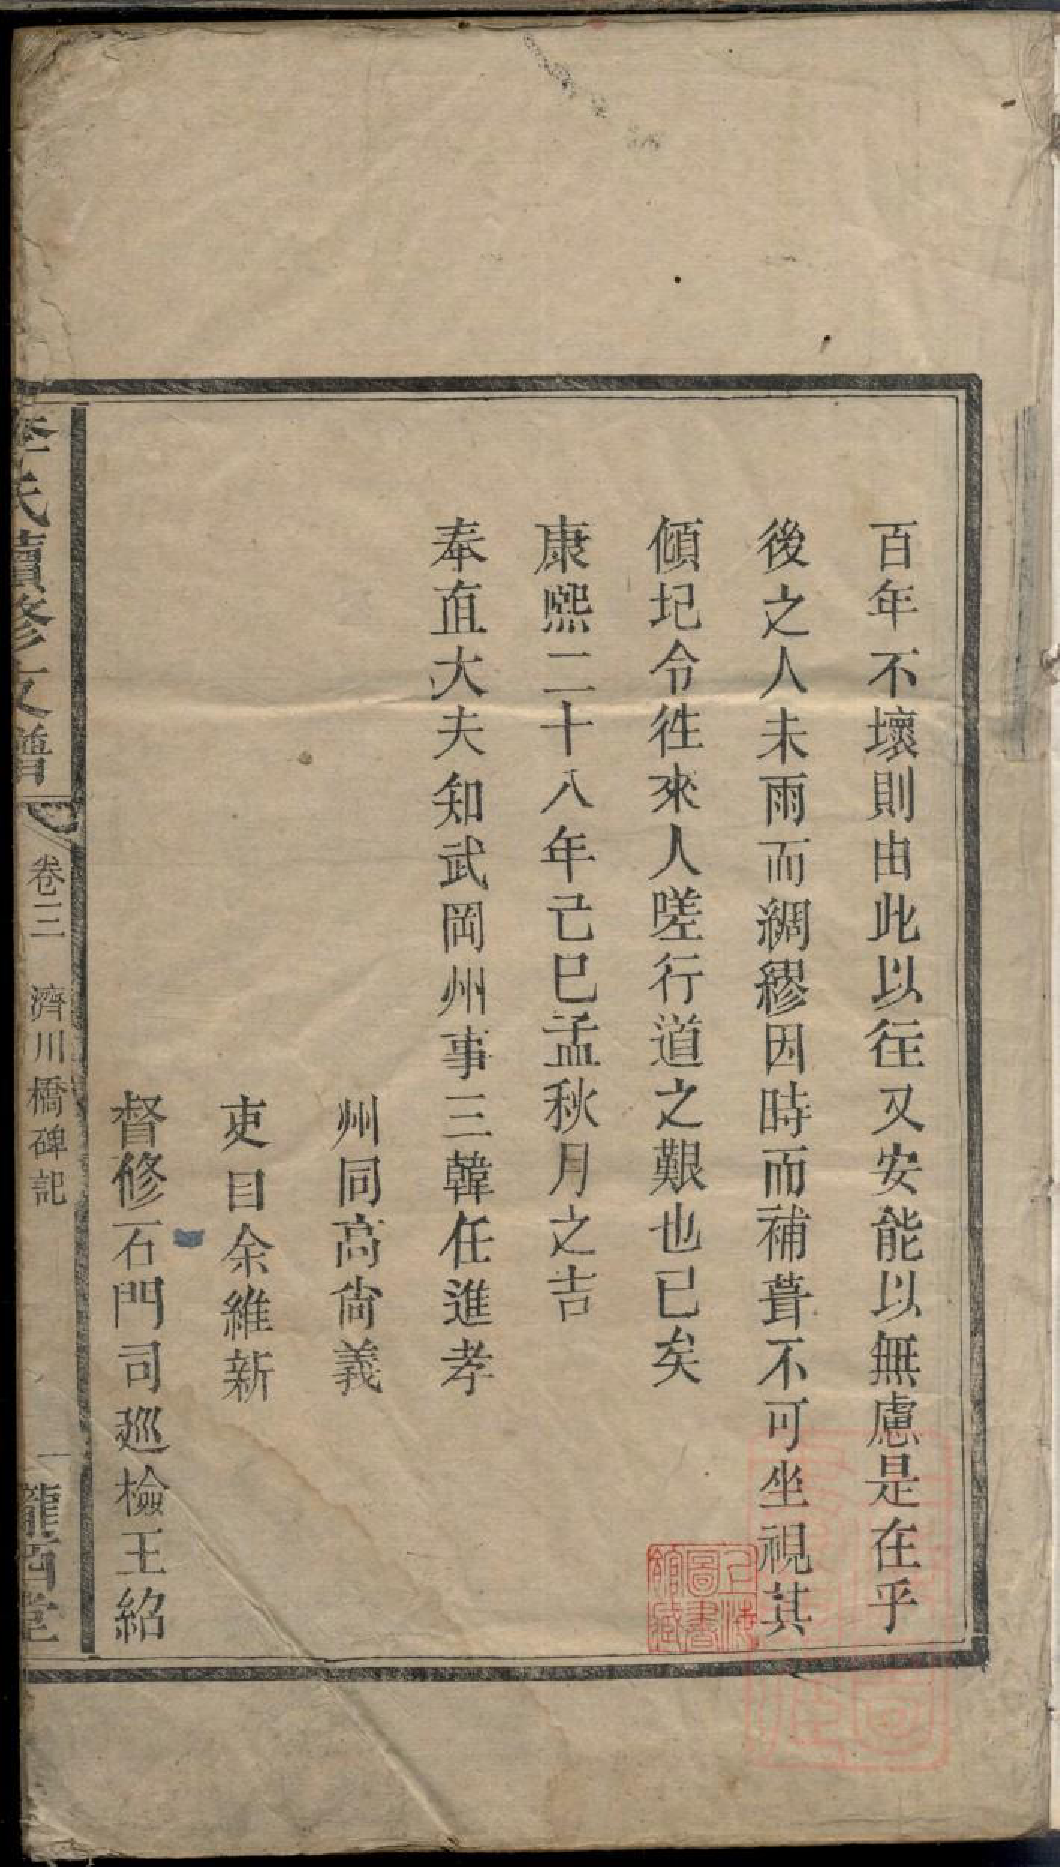 百年不壞則由此以徃又安能以無慮是在乎
後之人未雨而綢繆因時而補葺不可坐視其
傾圮令徃來人嗟行道之艱也已矣
康熙二十八年己巳孟秋月之吉
奉直大夫知武岡州事三韓任進孝
州同高尚義
吏目余維新
督修石門司廵檢王紹
李氏續修文譜
卷三
濟川橋碑記
一
隴西堂
上海圖書館藏